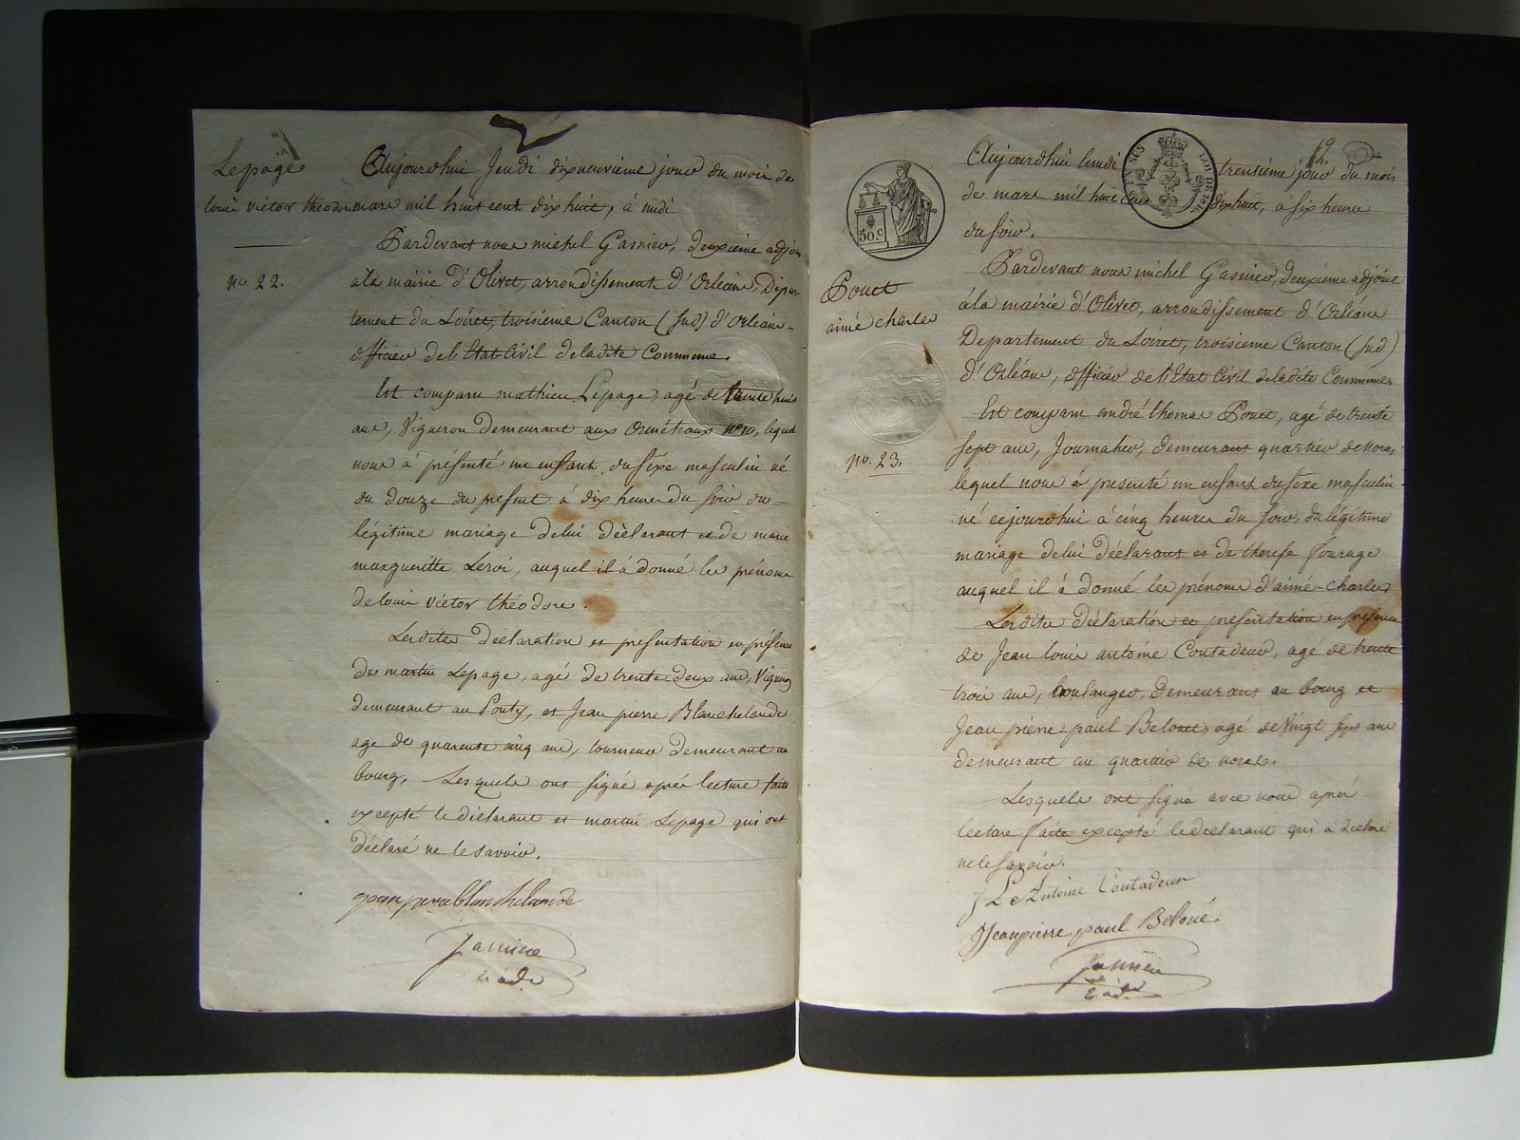 Lepage
louis victor théodore
n.o 22.
Aujourdhui Jeudi dixneuvieme jour du mois de
mars mil huit cent dix huit, à midi
Pardevant nous michel Gasnier, deuxieme adjoint
à la mairie d'Olivet, arrondissement d'Orléans, Dépar-
tement du Loiret, troisieme Canton (sud) d'Orléans
officier de l'Etat Civil de ladite Commune.
Est comparu mathieu Lepage, agé de trente huit
ans, Vigneron demeurant aux n.o 10, lequel
nous à présenté un enfant, du sexe masculin né
du douze du présent à dix heures du soir du
légitime mariage de lui déclarant et de marie
margueritte Leroi, auquel il à donné les prénoms
de louis victor théodore.
Lesdites déclaration et présentation en présence
de martin Lepage, agé de trente deux ans, Vigneron
demeurant au Poutÿ, et Jean pierre Blanchelande
age de quarente cinq ans, tourneur demeurant au
bourg, Lesquels ont signé après lecture faite
excepté le déclarant et martin Lepage qui ont
déclaré ne le savoir.
jean pierre blanchelande
Gasnier
2.e ad.
12.
50 c
Pouet
aimé charles
n.o 23.
Aujourdhui lundi treusième jour du mois
de mars mil huit cent dixhuit, à six heures
du soir.
Pardevant nous michel Gasnier, deuxieme adjoint
à la mairie d'Olivet, arrondissement d'Orléans
Departement du Loiret, troisieme Canton (sud)
d'Orléans, officier de l'Etat Civil de ladite Commune
Est comparu andré thomas Pouet, agé de trente
sept ans, Journalier, demeurant quartier de
lequel nous à présenté un enfant du sexe masculin
né cejourdhui à cinq heures du soir, du légitime
mariage de lui déclarant et de therese fourage
auquel il à donné les prénoms d'aimé-charles
Lesdites déclaration et présentation en présence
de Jean louis antoine Contadeur, agé de trente
trois ans, boulanger, demeurant au bourg et
Jean pierre paul Beloué agé de Vingt sept ans
demeurant au quartier de
Lesquels ont signé avec nous après
lecture faite excepté le déclarant qui a déclaré
ne le savoir.
J L Antoine Contadeur
Jeanpierre paul Beloué.
Gasnier
2.e ad.